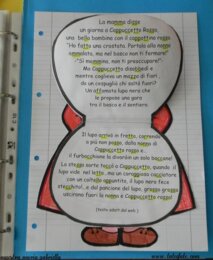 La mamma disse
un giorno a Cappuccetto Rosso,
una bella bambina con il cappottino rosso:
"Ho fatto una crostata. Portala alla nonna
ammalata, ma nel bosco non ti fermare!"
-"Sì mammina, non ti preoccupare!"
Ma Cappuccetto disobbedì e
mentre coglieva un mazzo di fiori,
da un cespuglio chi saltò fuori?
Un affamato lupo nero che
le propose una gara
tra il bosco e il sentiero.
Il lupo arrivò in fretta, correndo
a più non posso, dalla nonna di
Cappuccetto rosso e...
il furbacchione la divorò in un solo boccone!
La stessa sorte toccò a Cappuccetto, quando il
lupo vide nel letto, ma un coraggioso cacciatore
con un coltello appuntito, il lupo nero fece
stecchito!...e dal pancione del lupo, grasso grasso
uscirono fuori la nonna e Cappuccetto rosso!
(testo adatt.dal web )